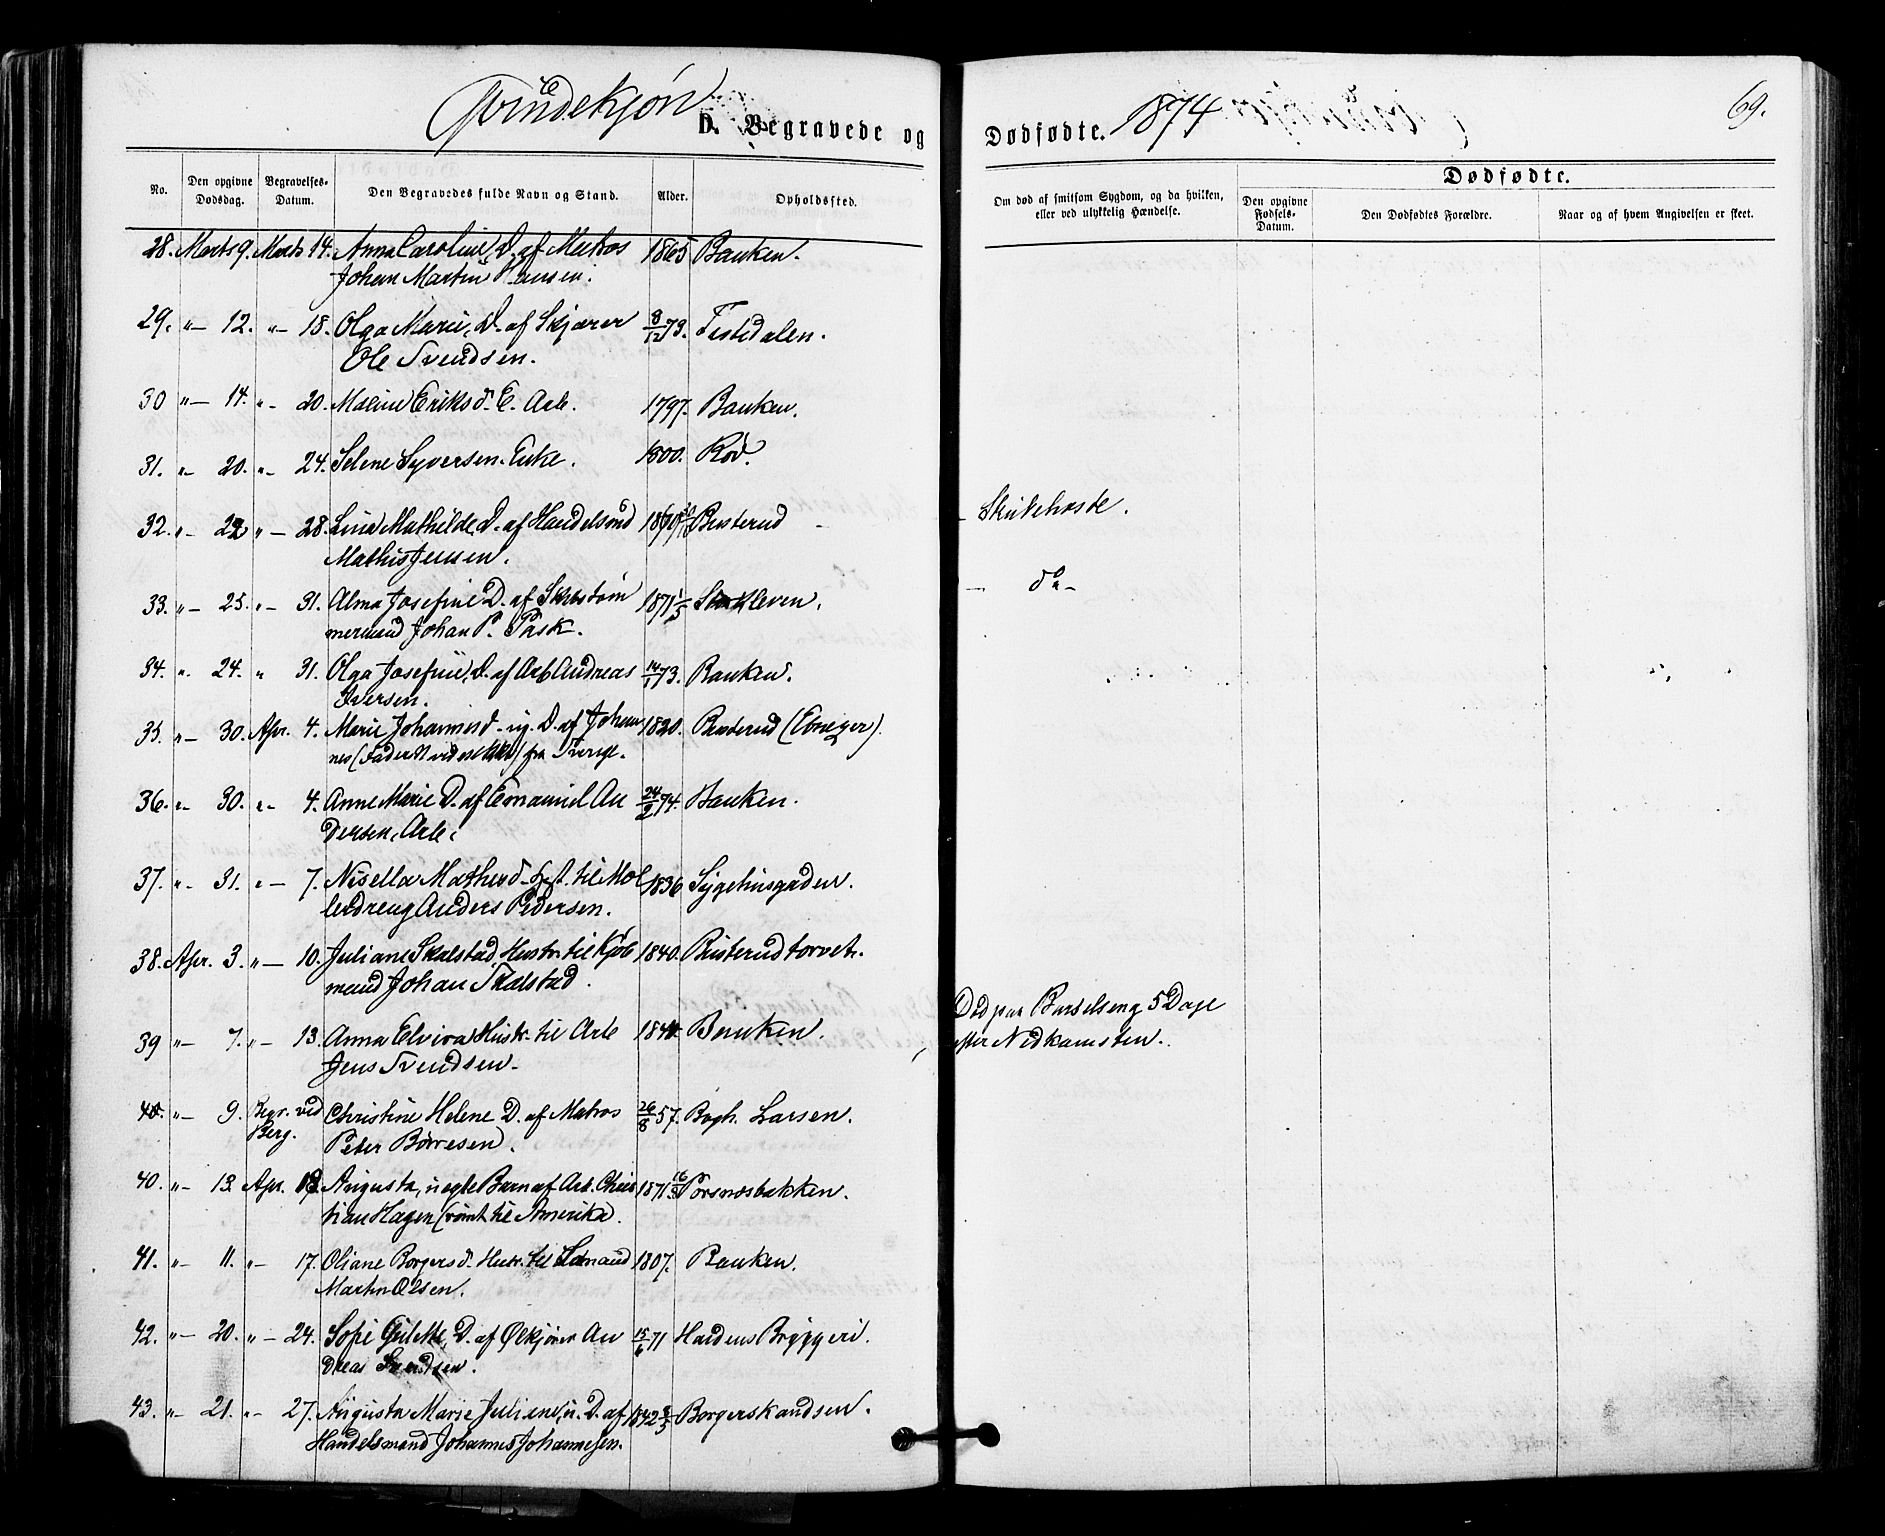 Qvindekjøn
D. Begravede og Dødfødte. 1874
69.
No.
Den opgivne Dødsdag.
Begravelses-Datum.
Den Begravedes fulde Navn og Stand.
Alder.
Opholdssted.
Om død af smitsom Sygdom, og da hvilken, eller ved ulykkelig Hændelse.
Dødfødte.
Den opgivne Fødsels-Datum.
Den Dødfødtes Forældre.
Naar og af hvem Angivelsen er skeet.
28. Marts 9. Marts 14. Anna Caroline, D. af Matros 1865 Banken.
Johan Martin Hansen.
29. "- 12. "- 18. Olga Marie, D. af Skjærer 8/12 73. Tistedalen.
Ole Svendsen.
30 "- 14. "- 20. Maline Eriksd. E. Arb. 1797. Banken.
31. "- 20. "- 24. Helene Syversen. Enke. 1800. Rød.
32. "- 22 "- 28. Lina Mathilde, D. af Handelsmd 1870 Busterud - Skikehoste.
Mathis Jensen.
33. "- 25. "- 31. Alma Josefine D. af Skibstøm 1871 1/5 Stenkleven. - do -
mermand Johan P. Pask.
34. "- 24. " 31. Olga Josefine, D. af Arb Andreas 14/1 73. Banken.
Iversen.
35. "- 30. Apr. 4. Marie Johannesd. ug. D. af Johan 1820. Busterud (Ebnezer).
nes (Faderen vides ikke) fra Sverige.
36. "- 30. "- 4. Anne Marie D. af Emanuel An 24/2 74. Banken.
dersen, Arb.
37. "- 31. "- 7. Nisella Mathesd. Hst. til Møl 1836 Sygehusgaden.
ledreng Anders Pedersen.
38. Apr. 3. "- 10. Juliane Skalstad, Hustr. til Kjøb 1840. Busterudtorvet.
mand Johan Skalstad.
Død paa Barselseng 5 Dage
39 "- 7. "- 13. Anna Elvira Hustr. til Arb 1844. Banken.
efter Nedkomsten.
Jens Svendsen -
40. "- 9. Begr. ved Berg. Christine Helene D. af Matros 26/8 57. Bogh. Larsen.
Peter Børresen.
40. "- 13. Apr. 18. Augusta, uegte Barn af Arb. Chris 1871 Porsnæsbakken.
tian Hagen (rømt til Amerika.
41. "- 11. "- 17. Oliane Borgersd. Hustr. til Sømand 1807. Banken.
Martin Olsen.
42. "- 20. "- 24. Sofie Gulette, D. af Ølkjører An 15/6 71 Haldens Bryggeri.
dreas Svendsen.
43. "- 21. "- 27. Augusta Marie Juliene, u. D. af 1842 8/3 Borgerskandsen.
Handelsmand Johannes Johannesen.